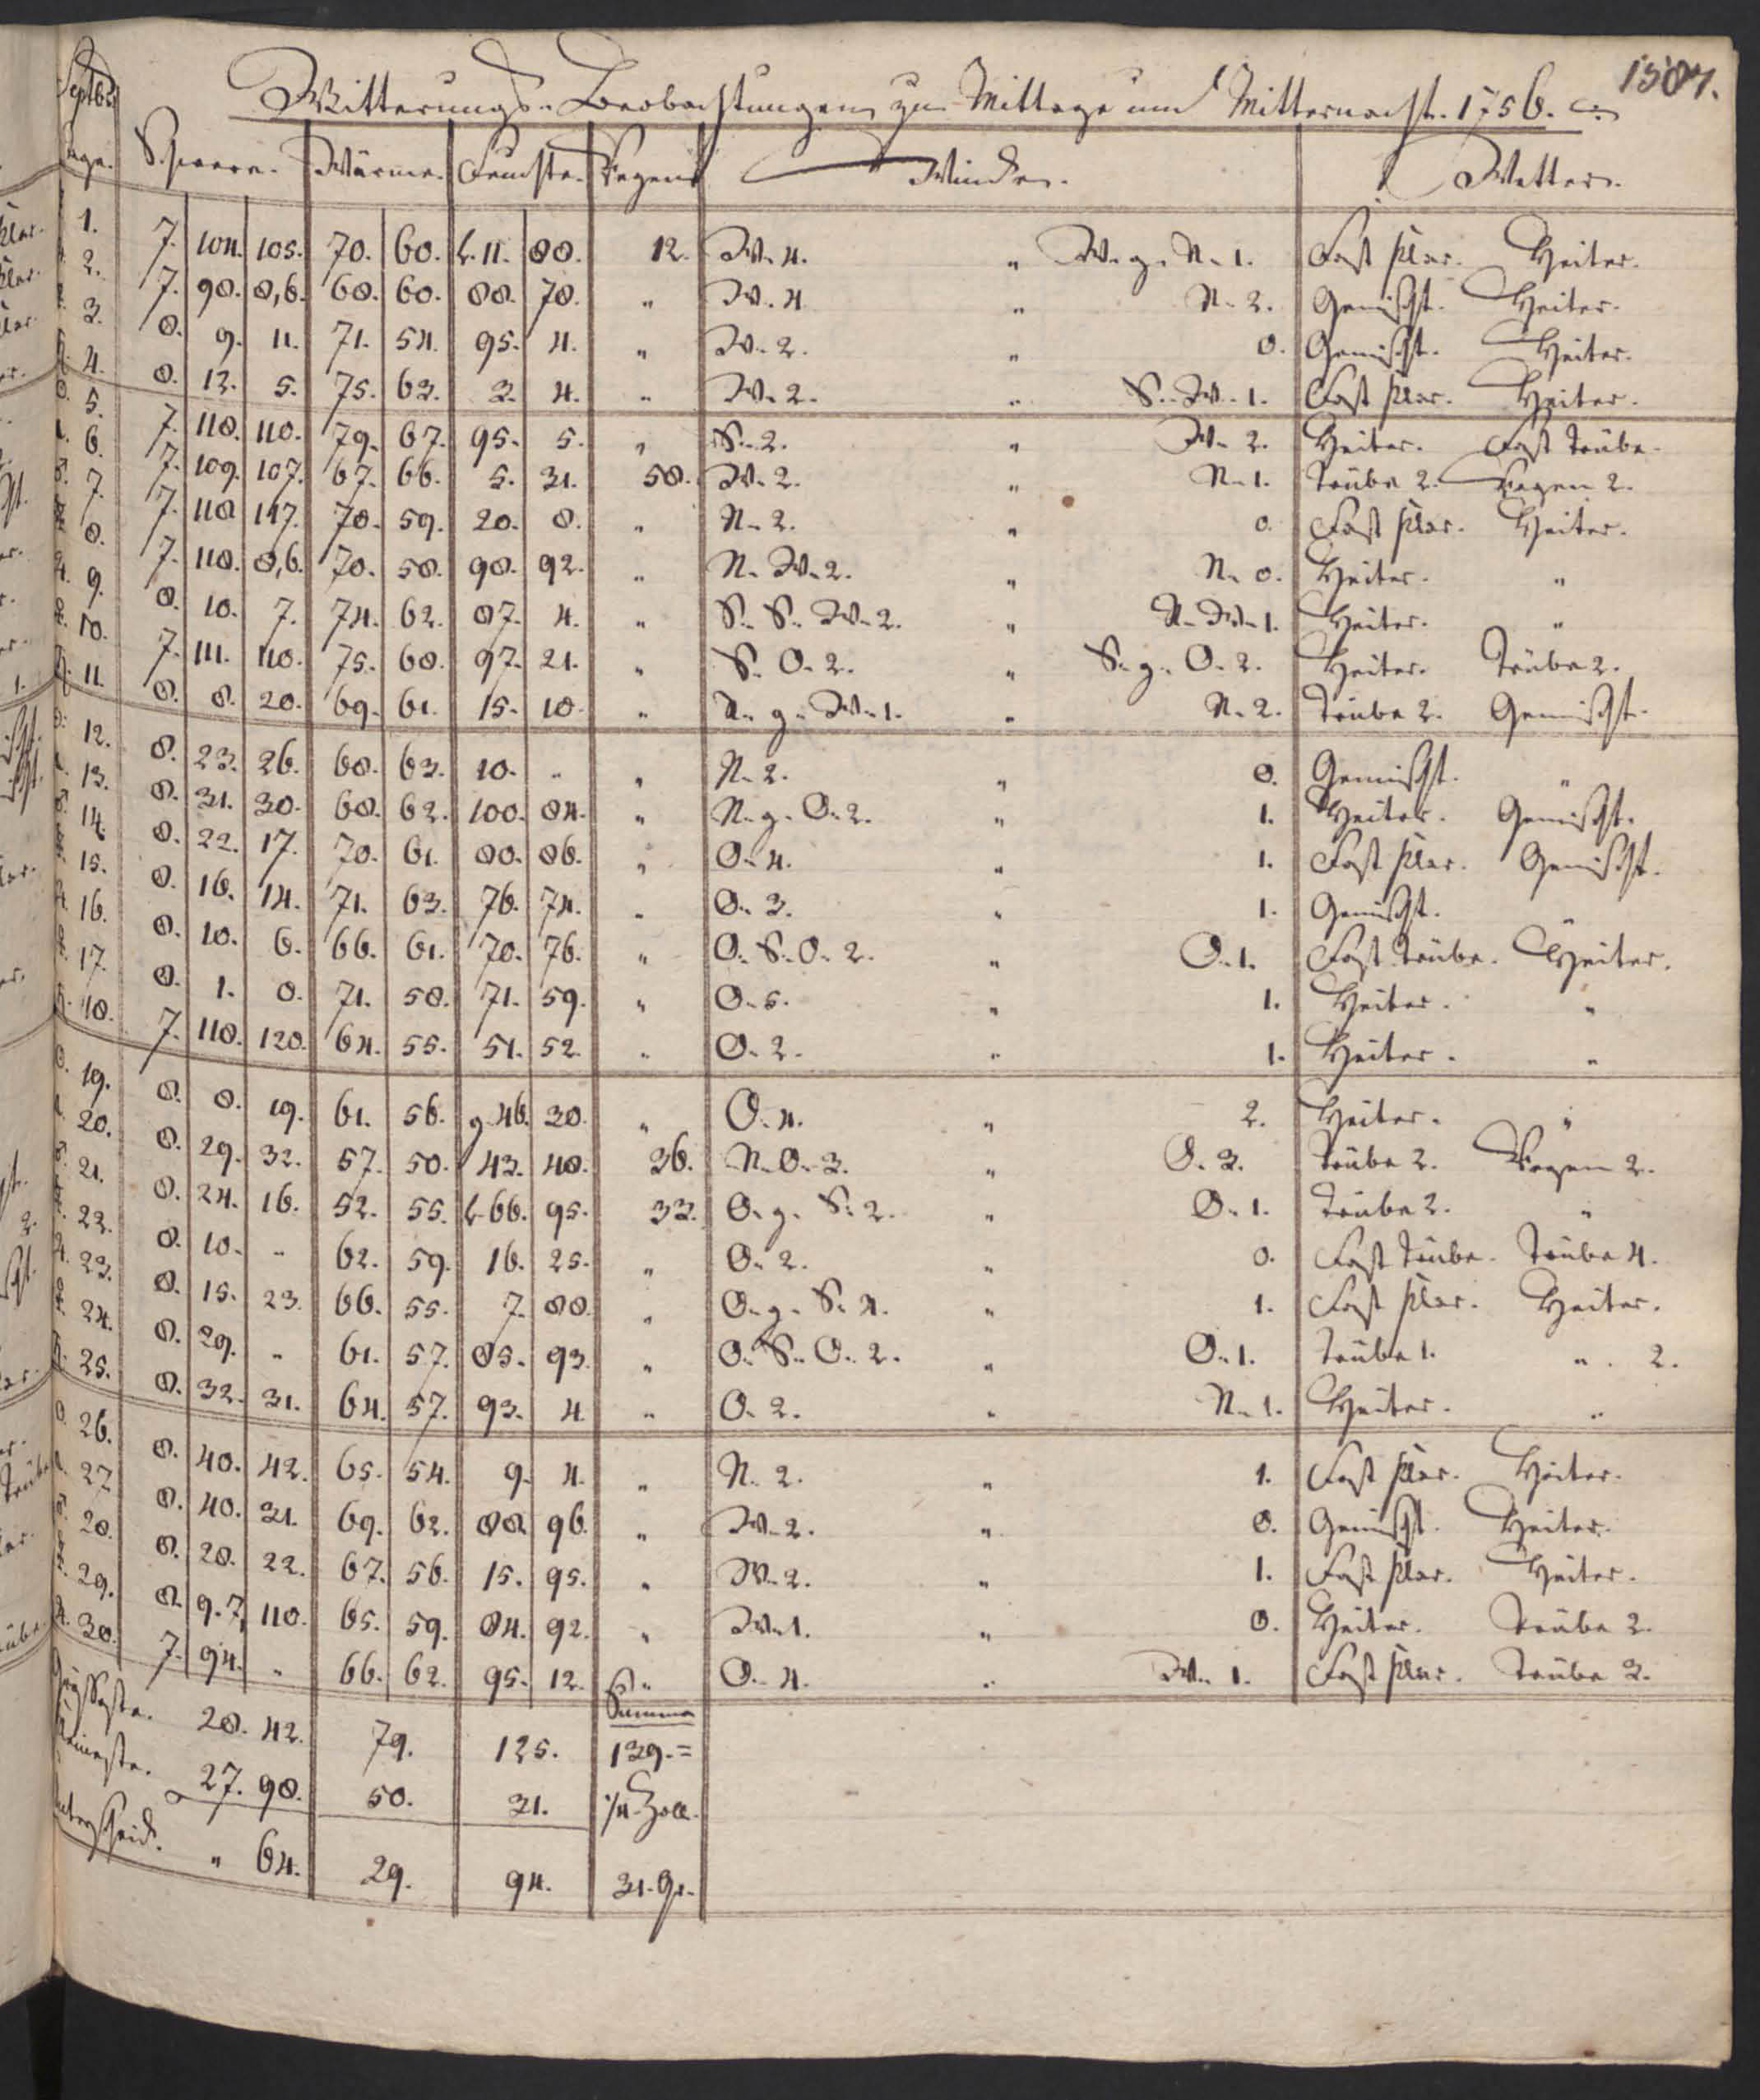 1587.
Septbr. Witterungs-Beobachtungen zu Mittage und Mitternacht. 1756.
Tage. Schwere. Wärme. Feuchte. Regen Winde. Wetter.
1. 7. 104. 105. 70. 60. 11. 88. 12. W. 4. " W. g. N. 1. Fast klar. Heiter.
2. 7. 98. 8,6. 68. 60. 88. 78. " W. 4. " N. 2. Gemischt. Heiter.
3. 8. 9. 11. 71. 54. 95. 4. " W. 2. " 0. Gemischt. Heiter.
4. 8. 12. 5. 75. 63. 3. 4. " W. 2. " S. W. 1. Fast klar. Heiter.
5. 7. 118. 110. 79. 67. 95. 5. " S. 2. " W. 2. Heiter. Fast trübe.
6. 7. 109. 107. 67. 66. 5. 31. 58. W. 2. " N. 1. Trübe 2. Regen 2.
7. 7. 118. 117. 70. 59. 20. 8. " N. 2. " 0. Fast klar. Heiter.
8. 7. 118. 8,6. 70. 58. 98. 92. " N. W. 2. " N. 0. Heiter. "
9. 8. 10. 7. 74. 62. 87. 4. " S. S. W. 2. " N. W. 1. Heiter. "
10. 7. 111. 110. 75. 68. 97. 21. " S. O. 2. " S. g. O. 2. Heiter. Trübe 2.
11. 8. 8. 20. 69. 61. 15. 18. " N. g. W. 1. " N. 2. Trübe 2. Gemischt.
12. 8. 23. 26. 68. 63. 10. " " N. 2. " 0. Gemischt. "
13. 8. 31. 30. 68. 62. 100. 84. " N. g. O. 2. " 1. Heiter. Gemischt.
14. 8. 22. 17. 70. 61. 80. 86. " O. 4. " 1. Fast klar. Gemischt.
15. 8. 16. 14. 71. 63. 76. 74. " O. 3. " 1. Gemischt. "
16. 8. 10. 6. 66. 61. 70. 76. " O. S. O. 2. " O. 1. Fast trübe. Heiter.
17. 8. 1. 0. 71. 58. 71. 59. " O. 5. " 1. Heiter. "
18. 7. 118. 120. 64. 55. 51. 52. " O. 2. " 1. Heiter. "
19. 8. 8. 19. 61. 56. 46. 30. " O. 4. " 2. Heiter. "
20. 8. 29. 32. 57. 50. 43. 48. 36. N. O. 3. " O. 3. Trübe 2. Regen 2.
21. 8. 24. 16. 52. 55. 66. 95. 33. O. g. S. 2. " O. 1. Trübe 2. "
22. 8. 10. " 62. 59. 16. 25. " O. 2. " 0. Fast trübe. Trübe 4.
23. 8. 15. 23. 66. 55. 7. 88. " O. g. S. 4. " 1. Fast klar. Heiter.
24. 8. 29. " 61. 57. 85. 93. " O. S. O. 2. " O. 1. Trübe 1. " 2.
25. 8. 32. 31. 64. 57. 93. 4. " O. 2. " N. 1. Heiter. "
26. 8. 40. 42. 65. 54. 9. 4. " N. 2. " 1. Fast klar. Heiter.
27. 8. 40. 31. 69. 62. 88. 96. " W. 2. " 0. Gemischt. Heiter.
28. 8. 28. 22. 67. 56. 15. 95. " W. 2. " 1. Fast klar. Heiter.
29. 8. 9. 7, 110. 65. 59. 84. 92. " W. 1. " 0. Heiter. Trübe 2.
30. 7. 94. " 66. 62. 95. 12. " O. 4. " W. 1. Fast klar. Trübe 3.
Summa
28. 42. 79. 125. 139. =
27. 98. 50. 31. 1/4 Zoll.
Unterscheid. " 64. 29. 94. 31. Gr.